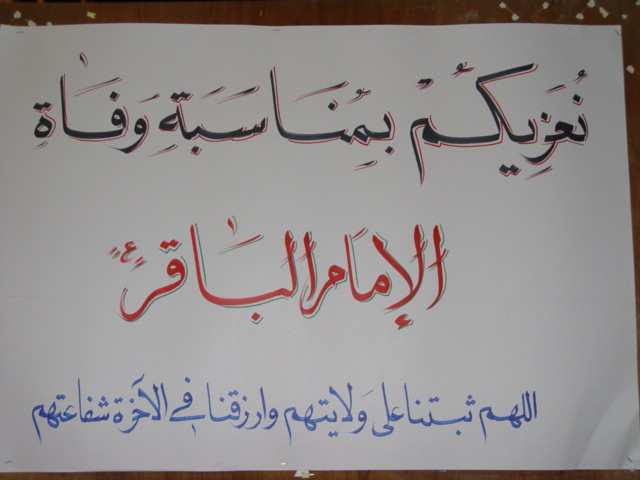 نُعَزِيكُمْ بِمُنَاسَبَةِ وَفَاةِ
الإمَام البَاقر "ع"
اللهم ثبتنا على وَلايتهم وارزقنا في الآخرة شفاعتهم